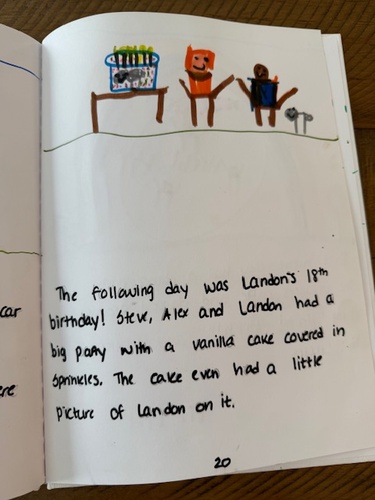 The following day was Landon's 18th
birthday! Steve, Alex and Landon had a
big party with a vanilla cake covered in
sprinkles. The cake even had a little
picture of Landon on it.
20
car
ere